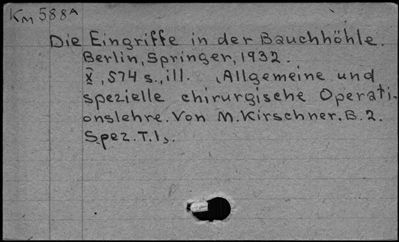 Km 588A
Die Eingriffe in der Bauchhöhle.
Berlin, Springer, 1932.
X, 574 s., ill. (Allgemeine und
spezielle chirurgische Operati-
onslehre. Von M. Kirschner. B. 2.
Spez. T. 1).